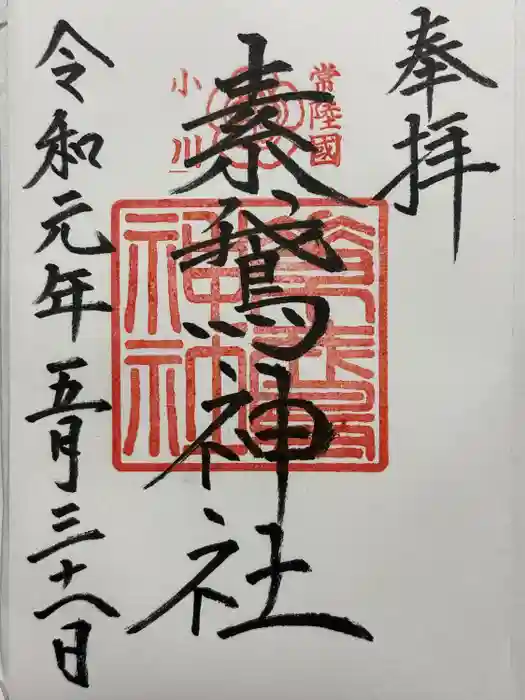 奉拝
常陸國
小川
素鵞神社
素鵞神社
令和元年五月三十八日